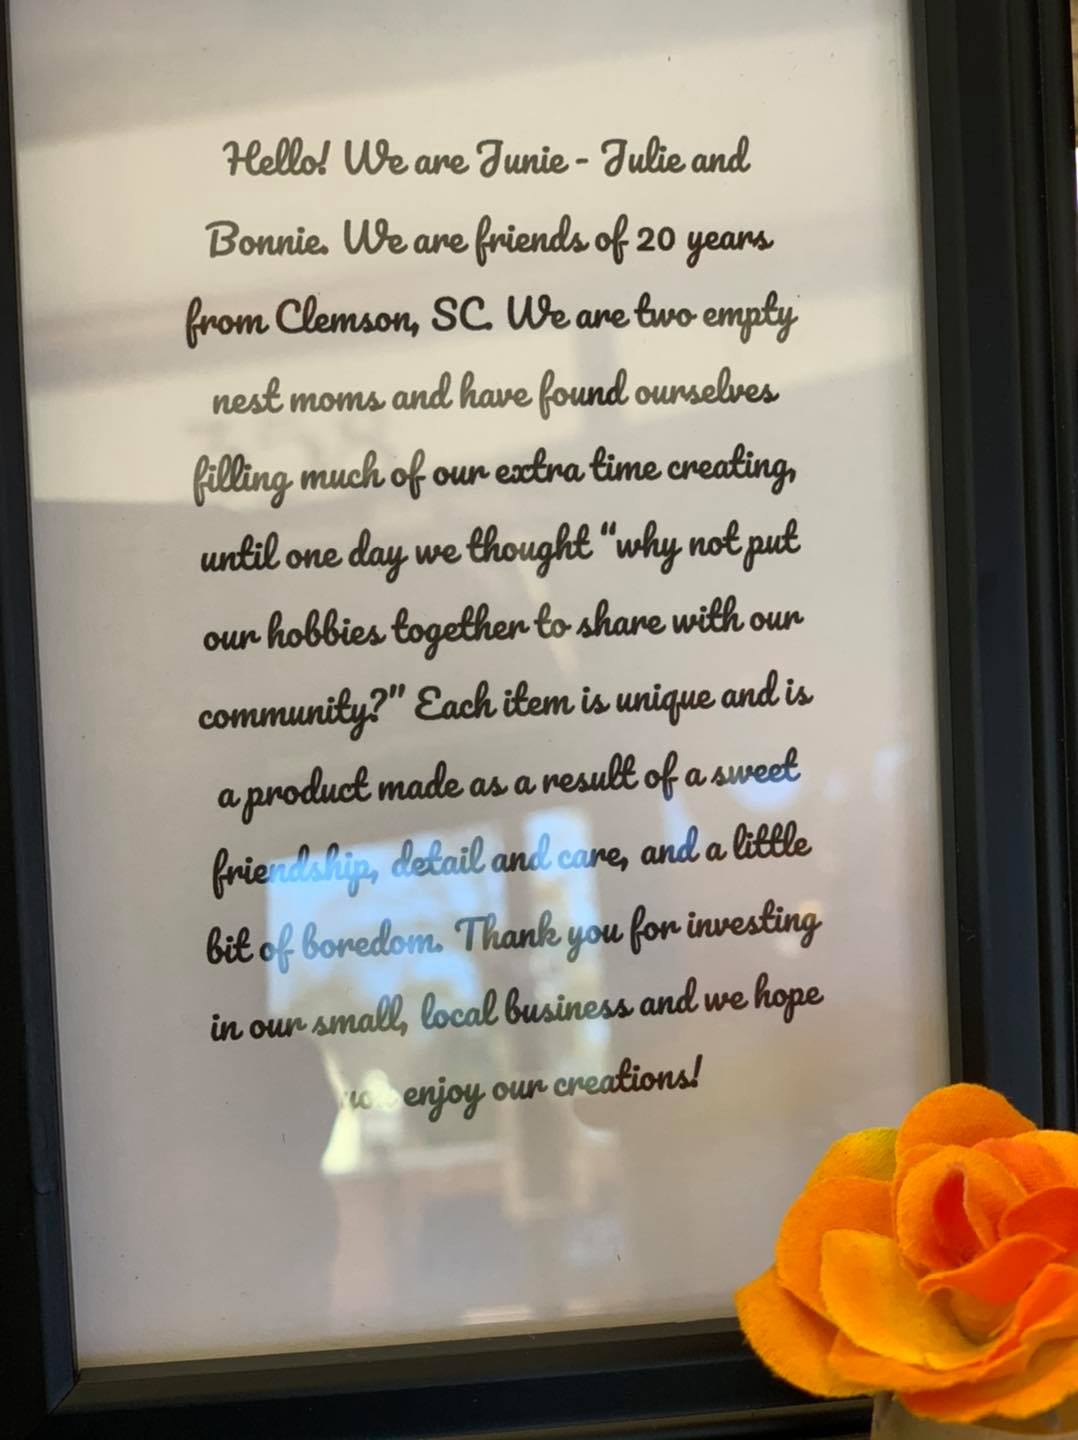 Hello! We are Junie - Julie and
Bonnie. We are friends of 20 years
from Clemson, SC. We are two empty
nest moms and have found ourselves
filling much of our extra time creating,
until one day we thought "why not put
our hobbies together to share with our
community?" Each item is unique and is
a product made as a result of a sweet
friendship, detail and care, and a little
bit of boredom. Thank you for investing
in our small, local business and we hope
you enjoy our creations!